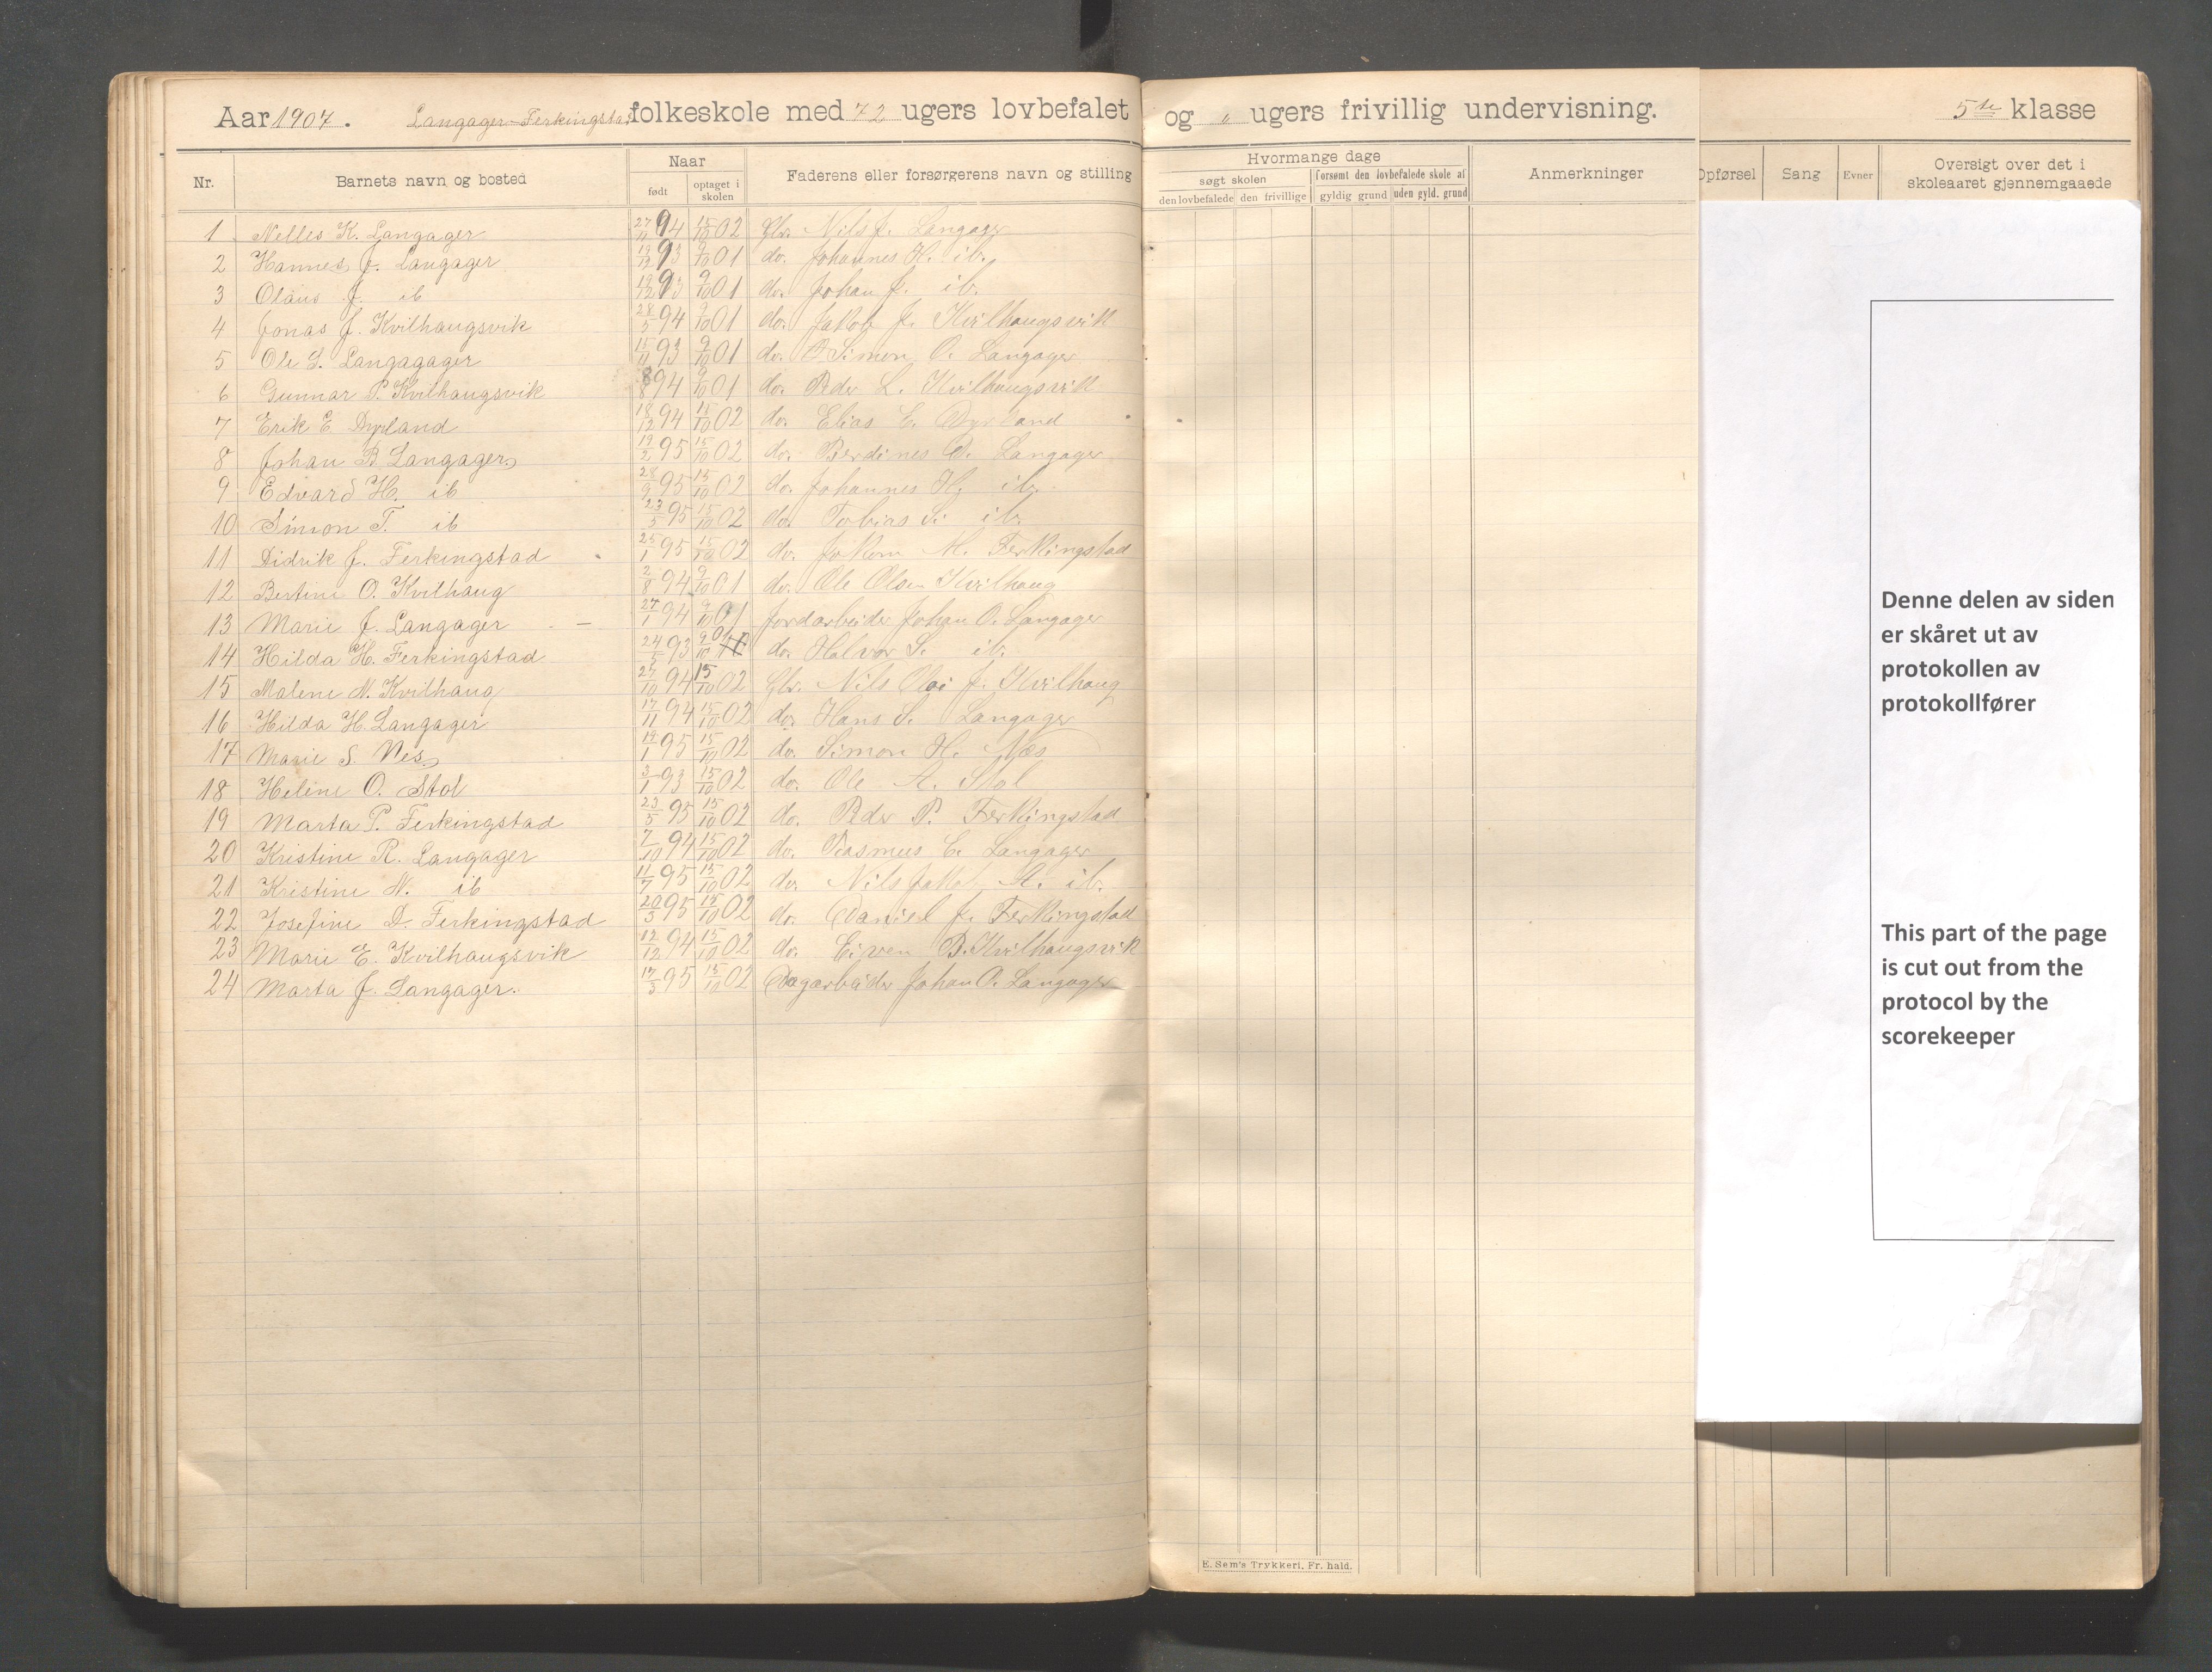 Aar 1907. Langager-Ferkingstad folkeskole med 72 ugers lovbefalet og " ugers frivillig undervisning. 5te klasse
Nr. Barnets navn og bosted Naar født optaget i skolen Faderens eller forsørgerens navn og stilling
Hvormange dage
søgt skolen forsømt den lovbefalede skole af
den lovbefalede den frivillige gyldig grund uden gyld. grund
Anmerkninger Opførsel Sang Evner Oversigt over det i skoleaaret gjennemgaaede
1 Nelles K. Langager 27/11 94 15/10 02 Gbr. Nils J. Langager
2 Hannes J. Langager 93 9/10 01 do. Johannes H. ib.
3 Olaus J. ib 19/12 93 9/10 01 do. Johan J. ib.
4 Jonas J. Kvilhaugsvik 28/5 94 9/10 01 do. Jakob J. Kvilhaugsvik
5 Ole S. Langagager 15/11 93 9/10 01 do. Simon O. Langager
6 Gunnar P. Kvilhaugsvik 8/8 94 9/10 01 do. Peder L. Kvilhaugsvik
7 Erik E Dyrland 18/12 94 15/10 02 do. Elias E. Dyrland
8 Johan B Langager 19/2 95 15/10 02 do. Berdines O. Langager
9 Edvard H. ib 28/9 95 15/10 02 do. Johannes H. ib.
10 Simon T. ib 23/5 95 15/10 02 do. Tobias S. ib.
11 Didrik J. Ferkingstad 25/1 95 15/10 02 do. Jakom M. Ferkingstad
12 Bertine O. Kvilhaug 2/8 94 9/10 01 do. Ole Olsen Kvilhaug
13 Marie J. Langager 27/1 94 9/10 01 Jordarbeider Johan O. Langager
14 Hilda H. Ferkingstad 24/5 93 9/10 01 do. Halvor S. ib.
15 Malene N. Kvilhaug 27/10 94 15/10 02 Gbr. Nils Olai J. Kvilhaug
16 Hilda H. Langager 17/11 94 15/10 02 do. Hans S. Langager
17 Marie S. Nes 19/1 95 15/10 02 do. Simon H. Næs
18 Heline O. Stol 3/1 93 15/10 02 do. Ole A. Stol
19 Marta P. Ferkingstad 23/5 95 15/10 02 do. Peder P. Ferkingstad
20 Kristine R. Langager 7/10 94 15/10 02 do. Rasmus E. Langager
21 Kristine N. ib 11/7 95 15/10 02 do. Nils Jakob A. ib.
22 Josefine D. Ferkingstad 20/3 95 15/10 02 do. Daniel J. Ferkingstad
23 Marie E. Kvilhaugsvik 12/12 94 15/10 02 do. Eiven B. Kvilhaugsvik
24 Marta J. Langager. 17/3 95 15/10 02 Dagarbeider Johan O. Langager
E. Sem's Trykkeri, Fr. hald.
Denne delen av siden
er skåret ut av
protokollen av
protokollfører
This part of the page
is cut out from the
protocol by the
scorekeeper